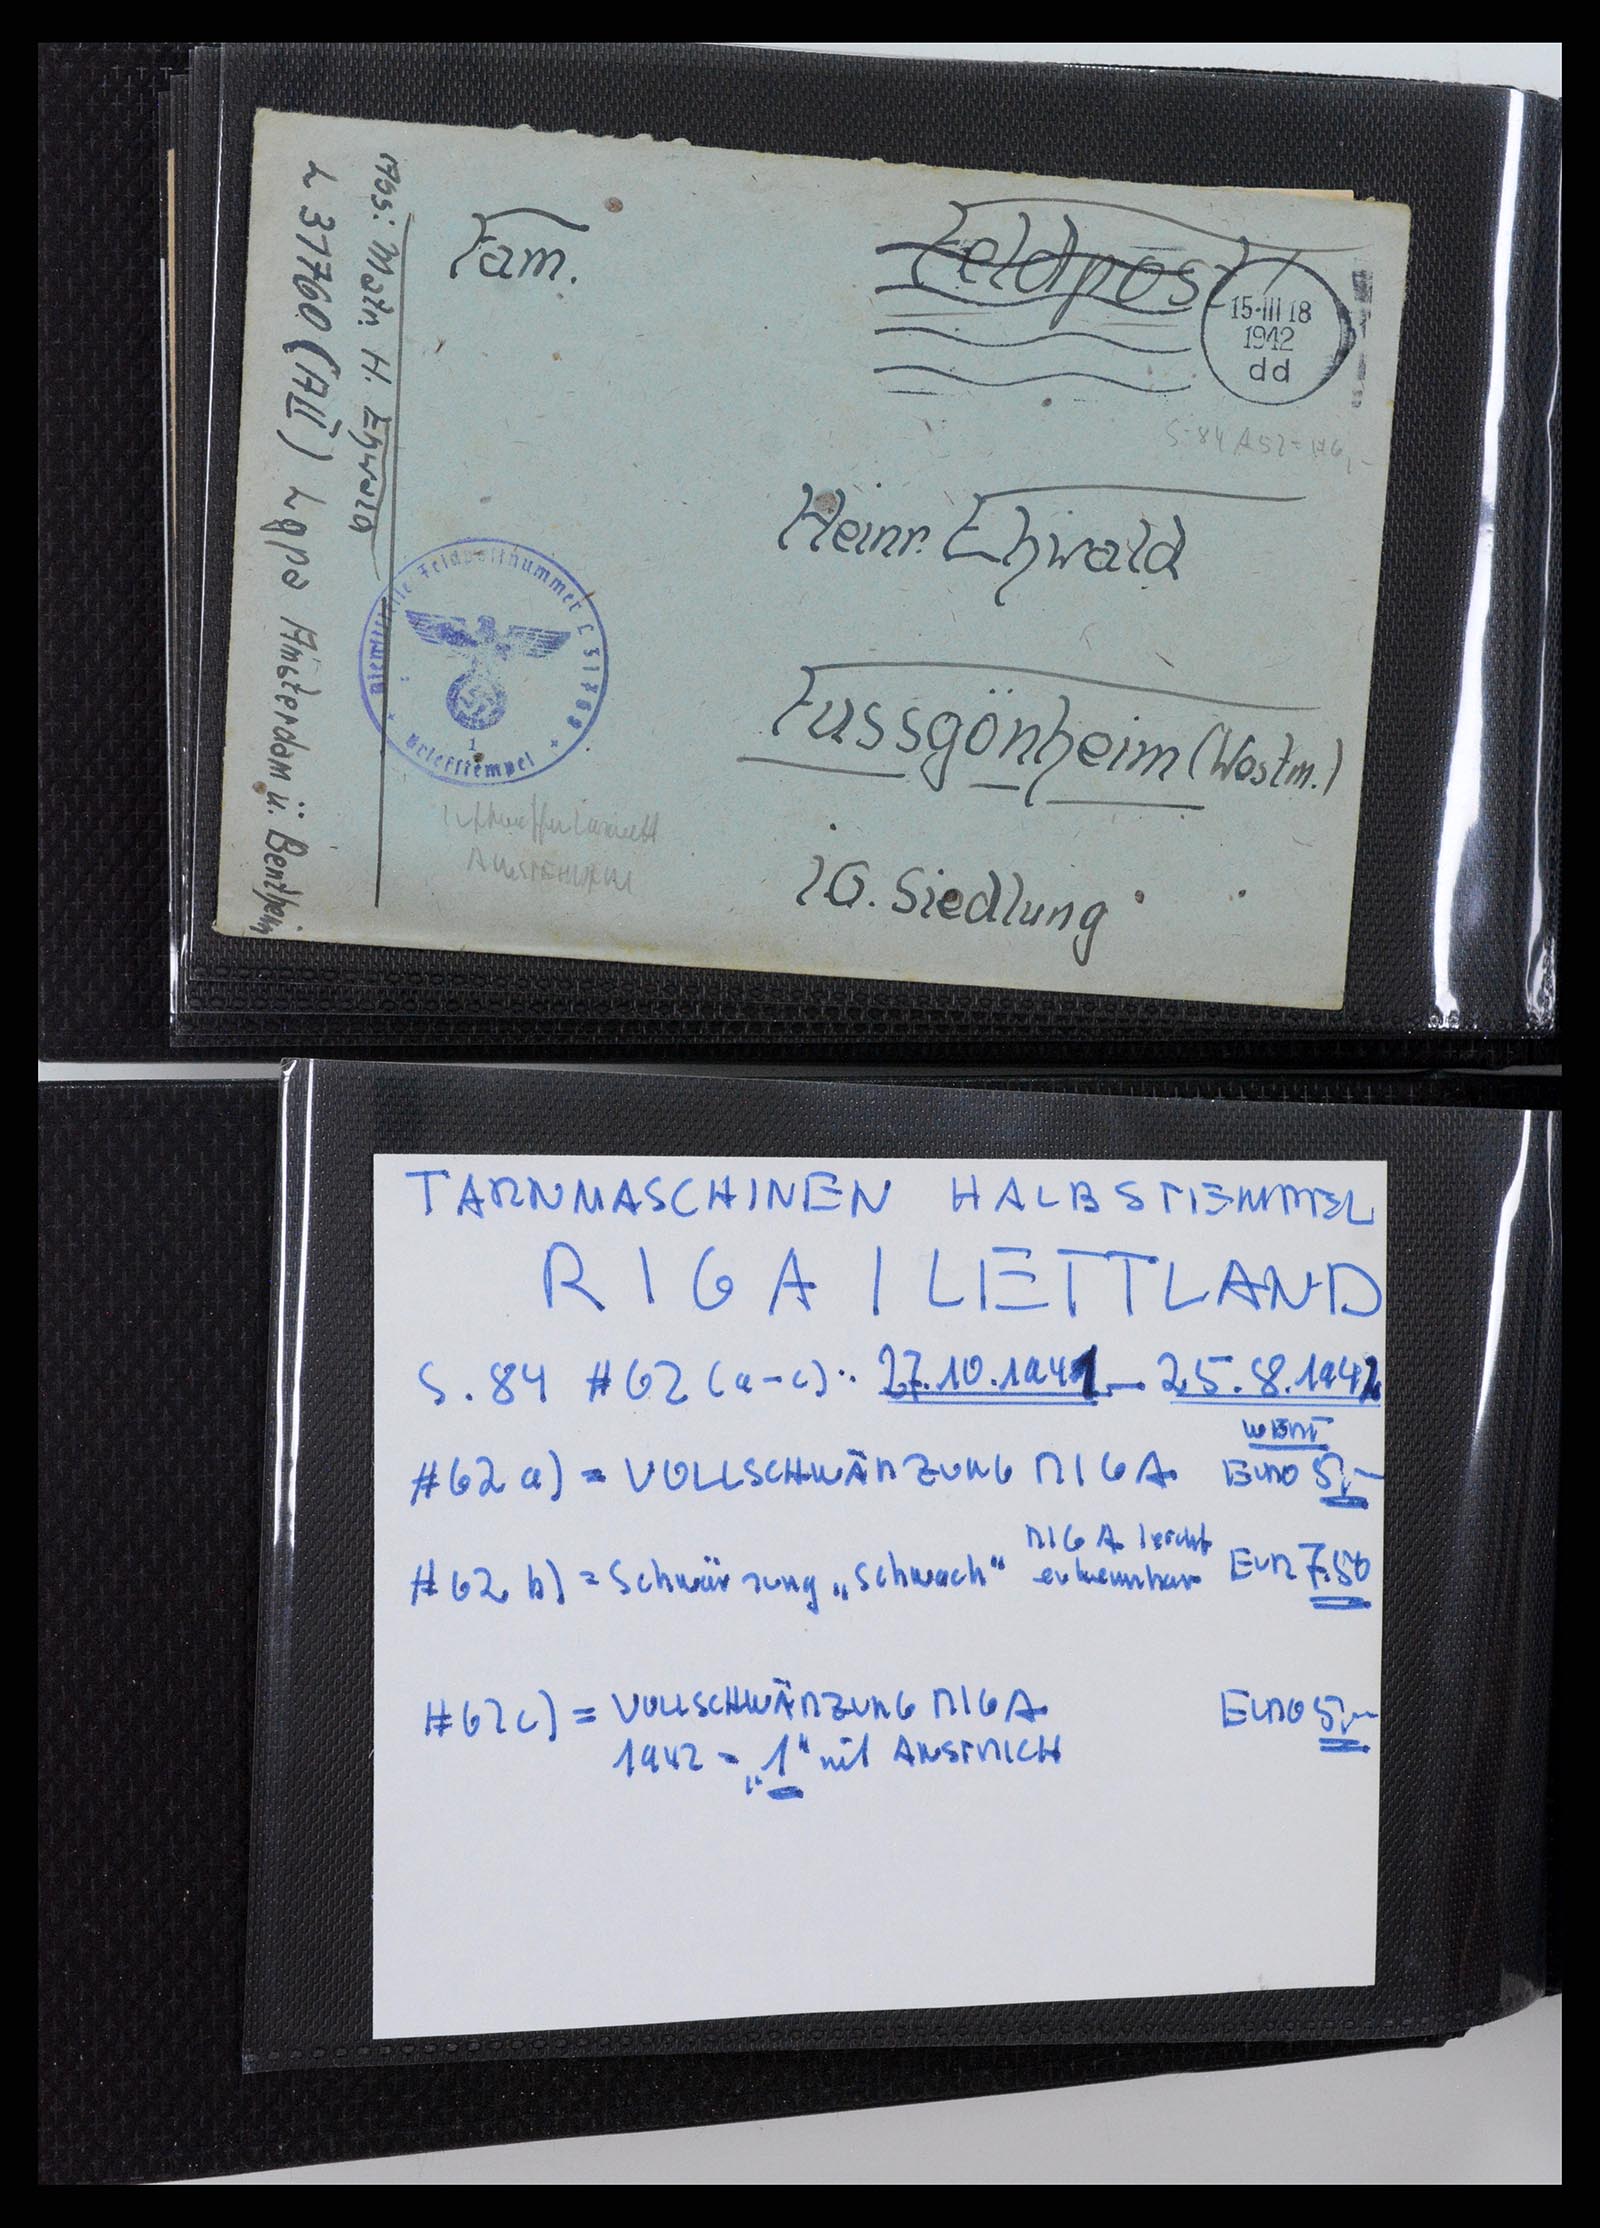 Feldpost
15-III 18
1942
dd
Fam.
Heinr. Ehwald
Fussgönheim (Westm.)
IG. Siedlung
Abs: Matr. H. Ehwald
L 37760 (AII) Lgpa Amsterdam ü. Bentheim
Dienststelle Feldpostnummer L
1
Briefstempel
S-84 A52 =
AMSTERDAM
TARNMASCHINEN HALBSTEMPEL
RIGA / LETTLAND
S. 84 #62 (a-c): 27.10.1941 - 25.8.1942
WERT
#62 a) = VOLLSCHWÄRZUNG RIGA EURO 5,-
#62 b) = Schwärzung „Schwach" RIGA leicht erkennbar EUR 7.50
#62 c) = VOLLSCHWÄRZUNG RIGA EURO 5,-
1942 = „1" mit ANSTRICH